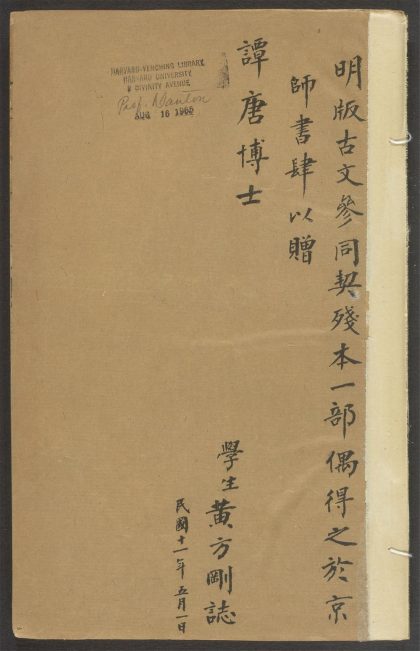 明版古文參同契殘本一部偶得之於京
師書肆以贈
譚唐博士
學生黃方剛誌
民國十一年五月一日
HARVARD-YENCHING LIBRARY
HARVARD UNIVERSITY
2 DIVINITY AVENUE
Prof. Danton
AUG 16 1965